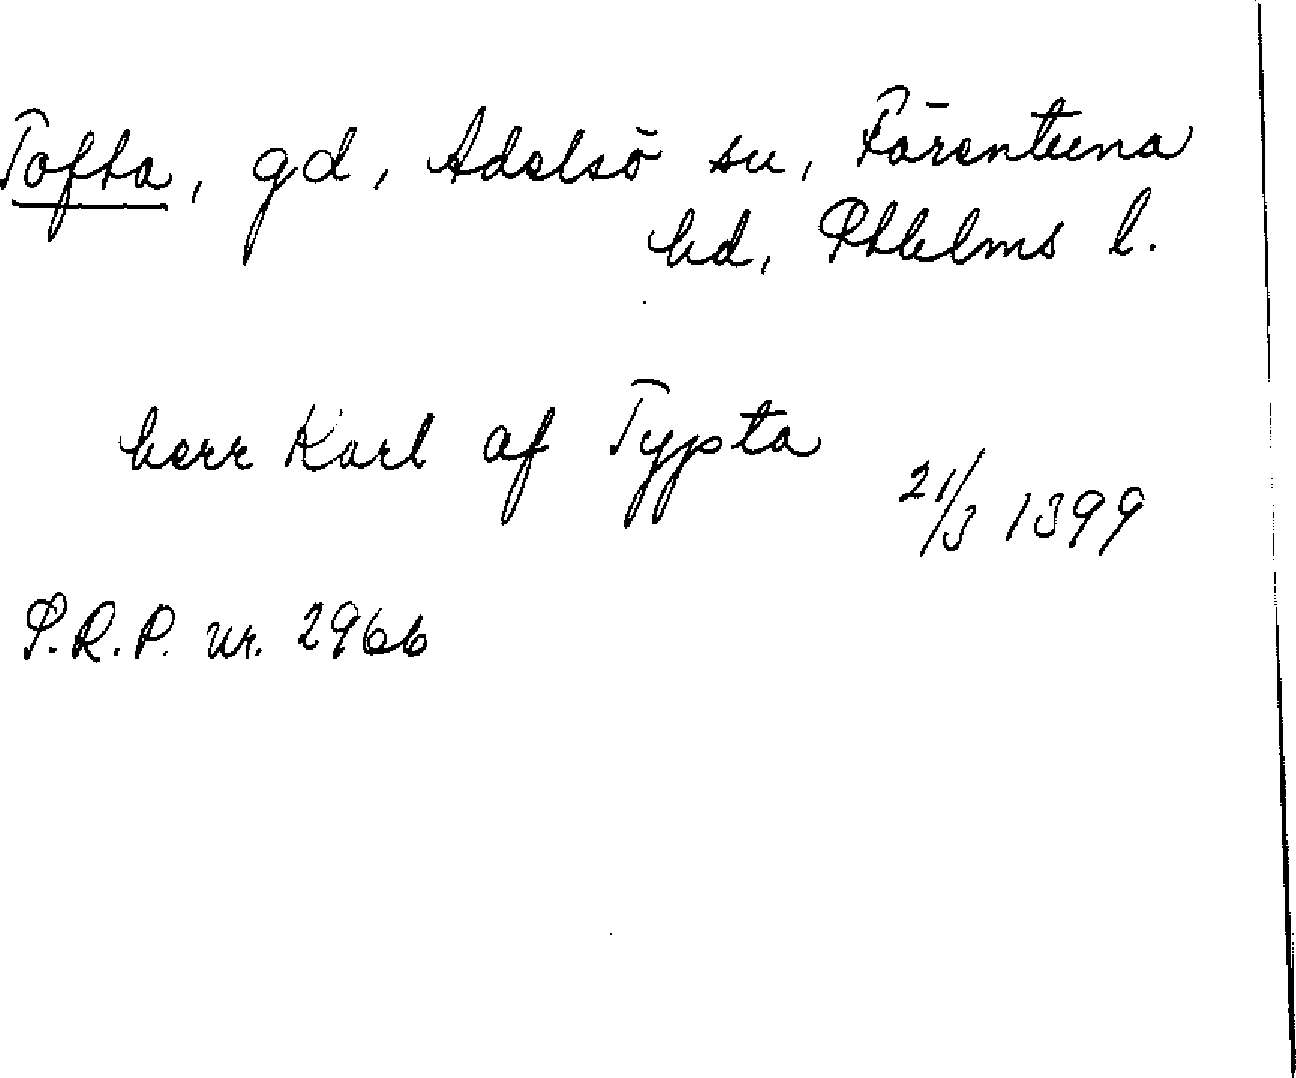 Tofta, gd, Adelsö sn, Färentuna
hd, Sthlms l.
herr Karl af Typta
21/3 1399
S.R.P. nr. 2966